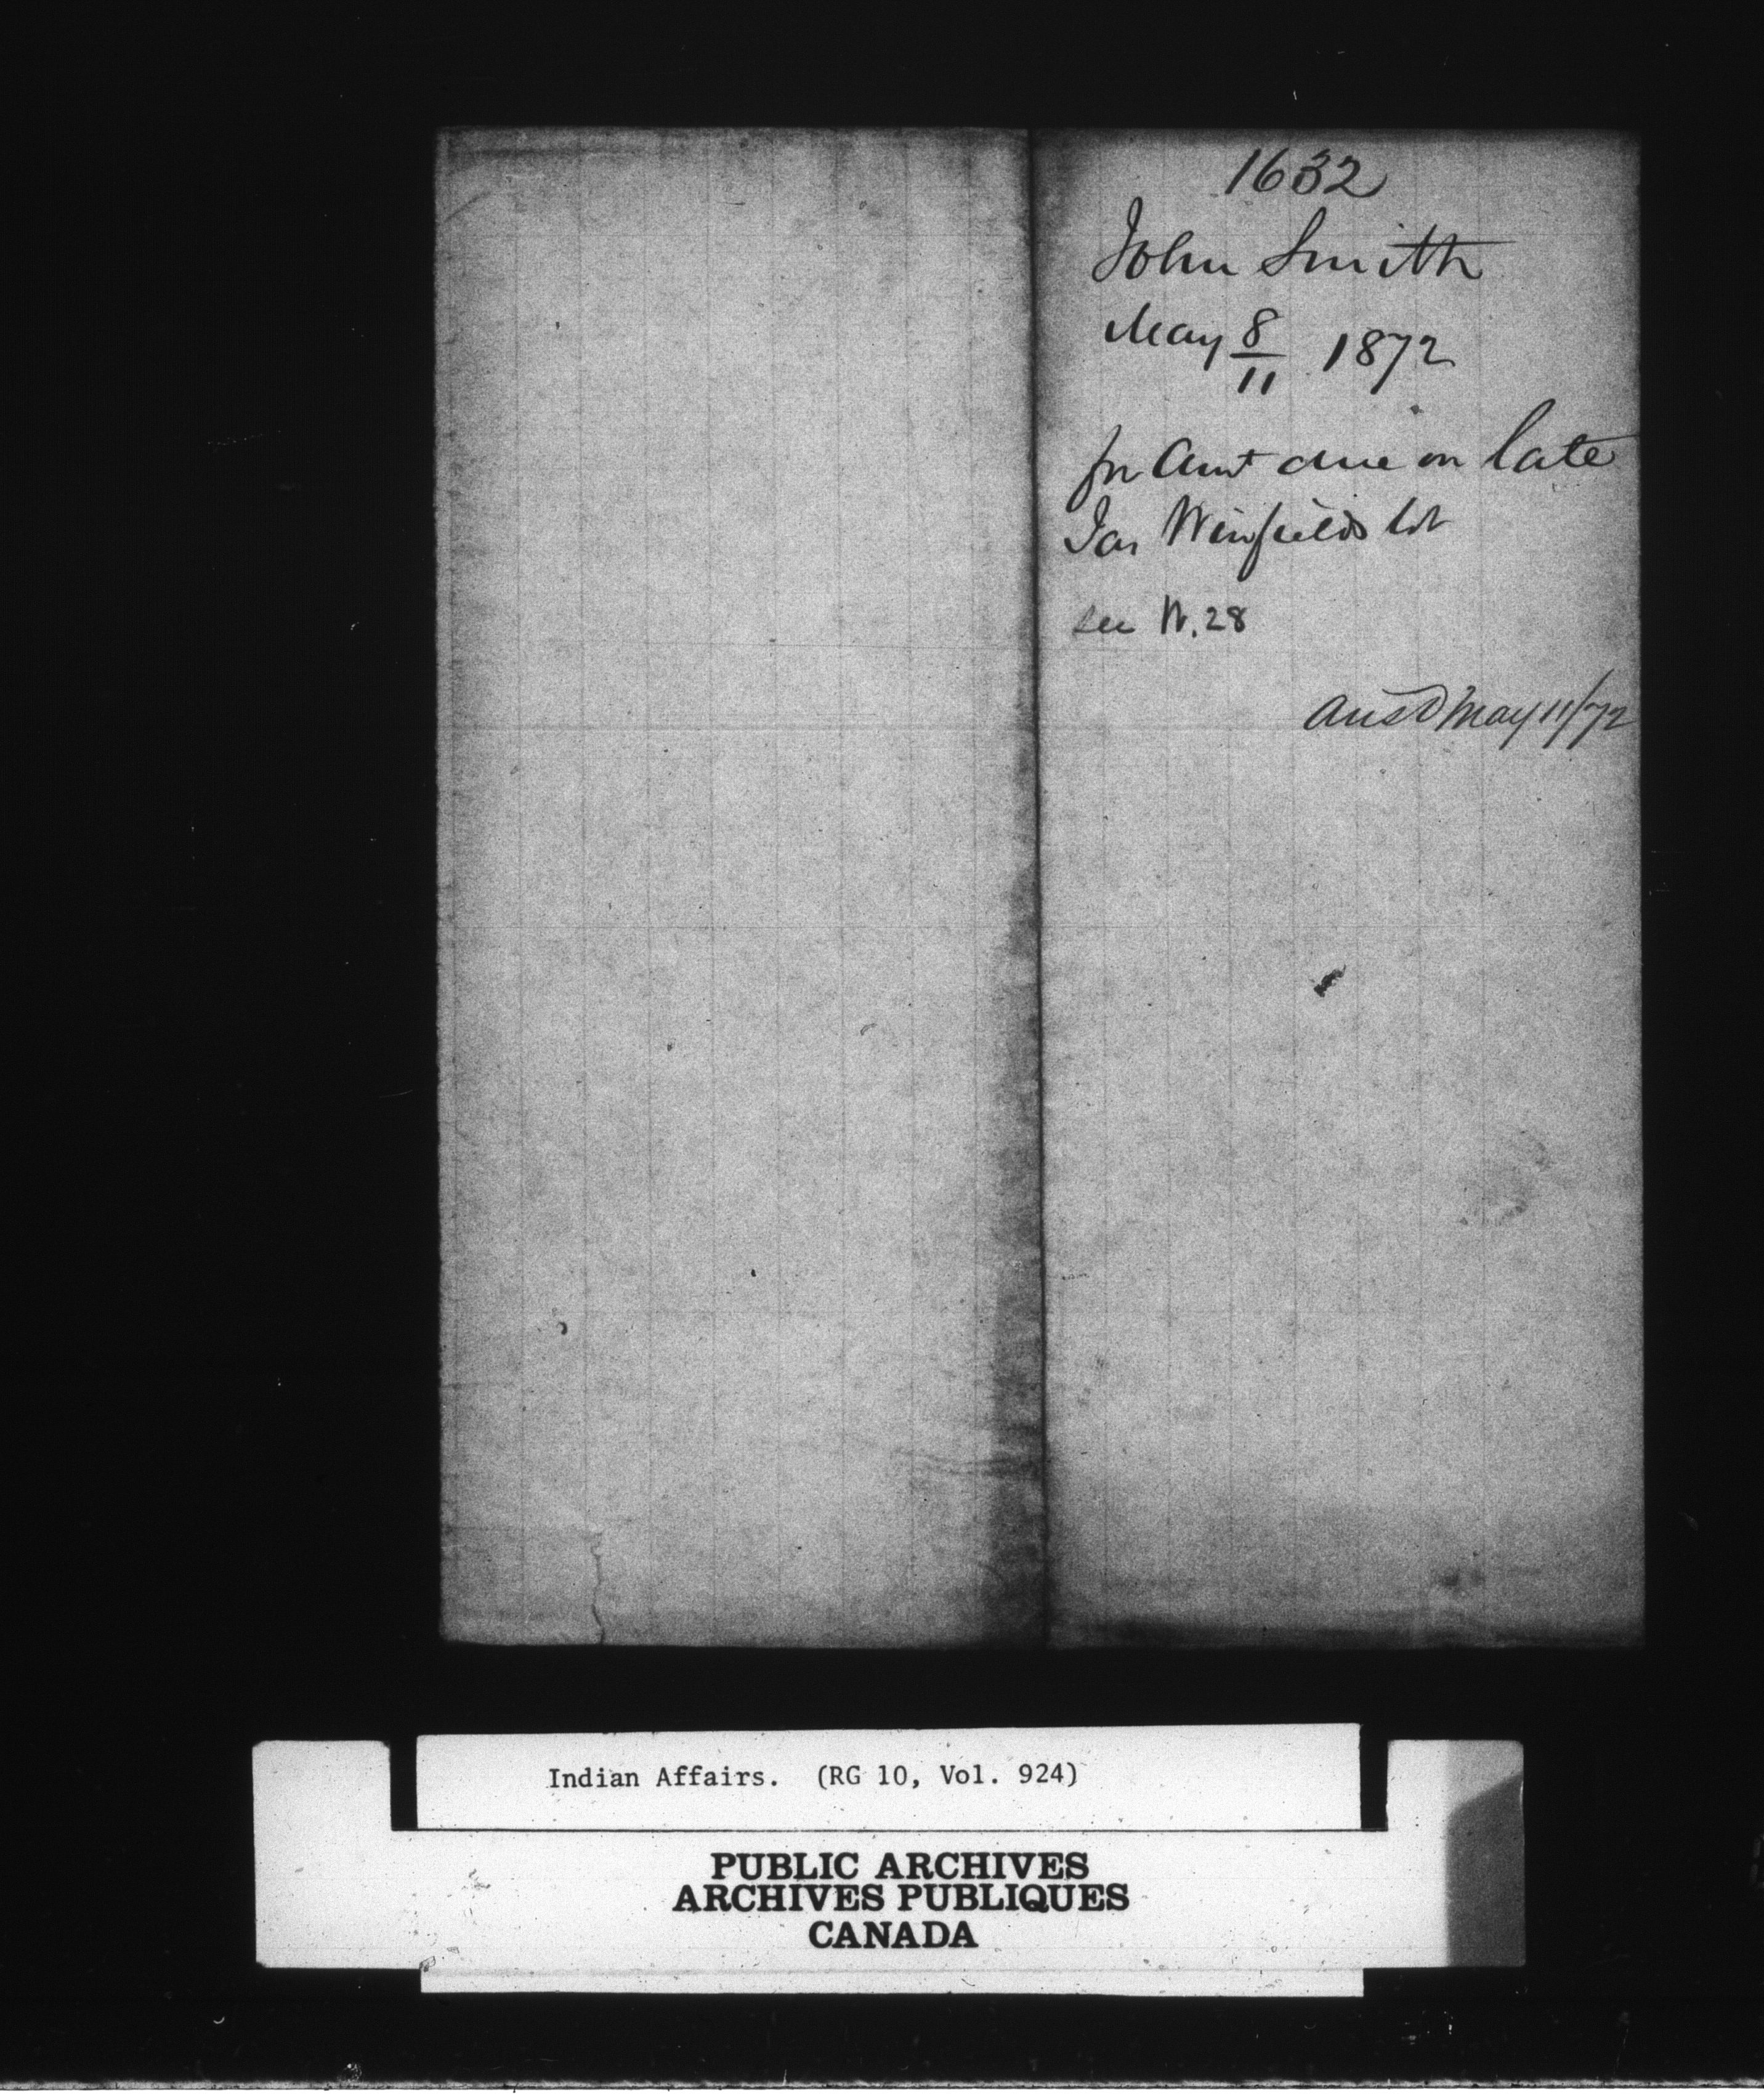 1632
John Smith
May 8/11 1872
for Amt due on late
Jas Winfields lot
see W. 28
Ansd May 11/72
Indian Affairs. (RG 10, Vol. 924)
PUBLIC ARCHIVES
ARCHIVES PUBLIQUES
CANADA